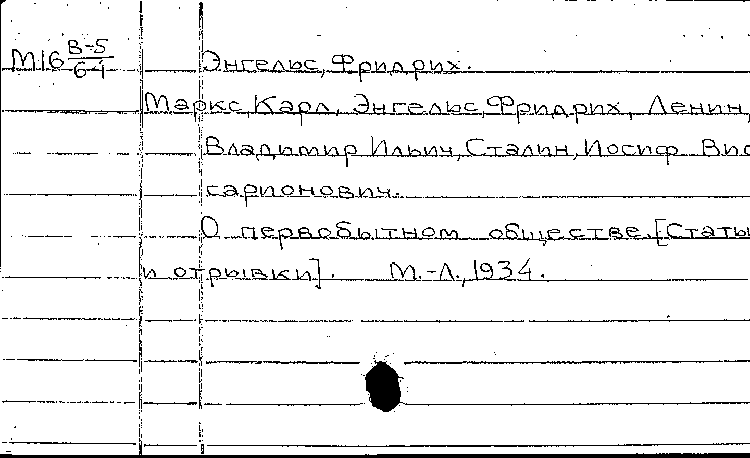 М16 В-5/64 Энгельс, Фридрих.
Маркс, Карл, Энгельс, Фридрих, Ленин,
Владимир Ильич, Сталин, Иосиф Вис
сарионович.
О первобытном обществе. [Статьи
и отрывки]. М.-Л., 1934.